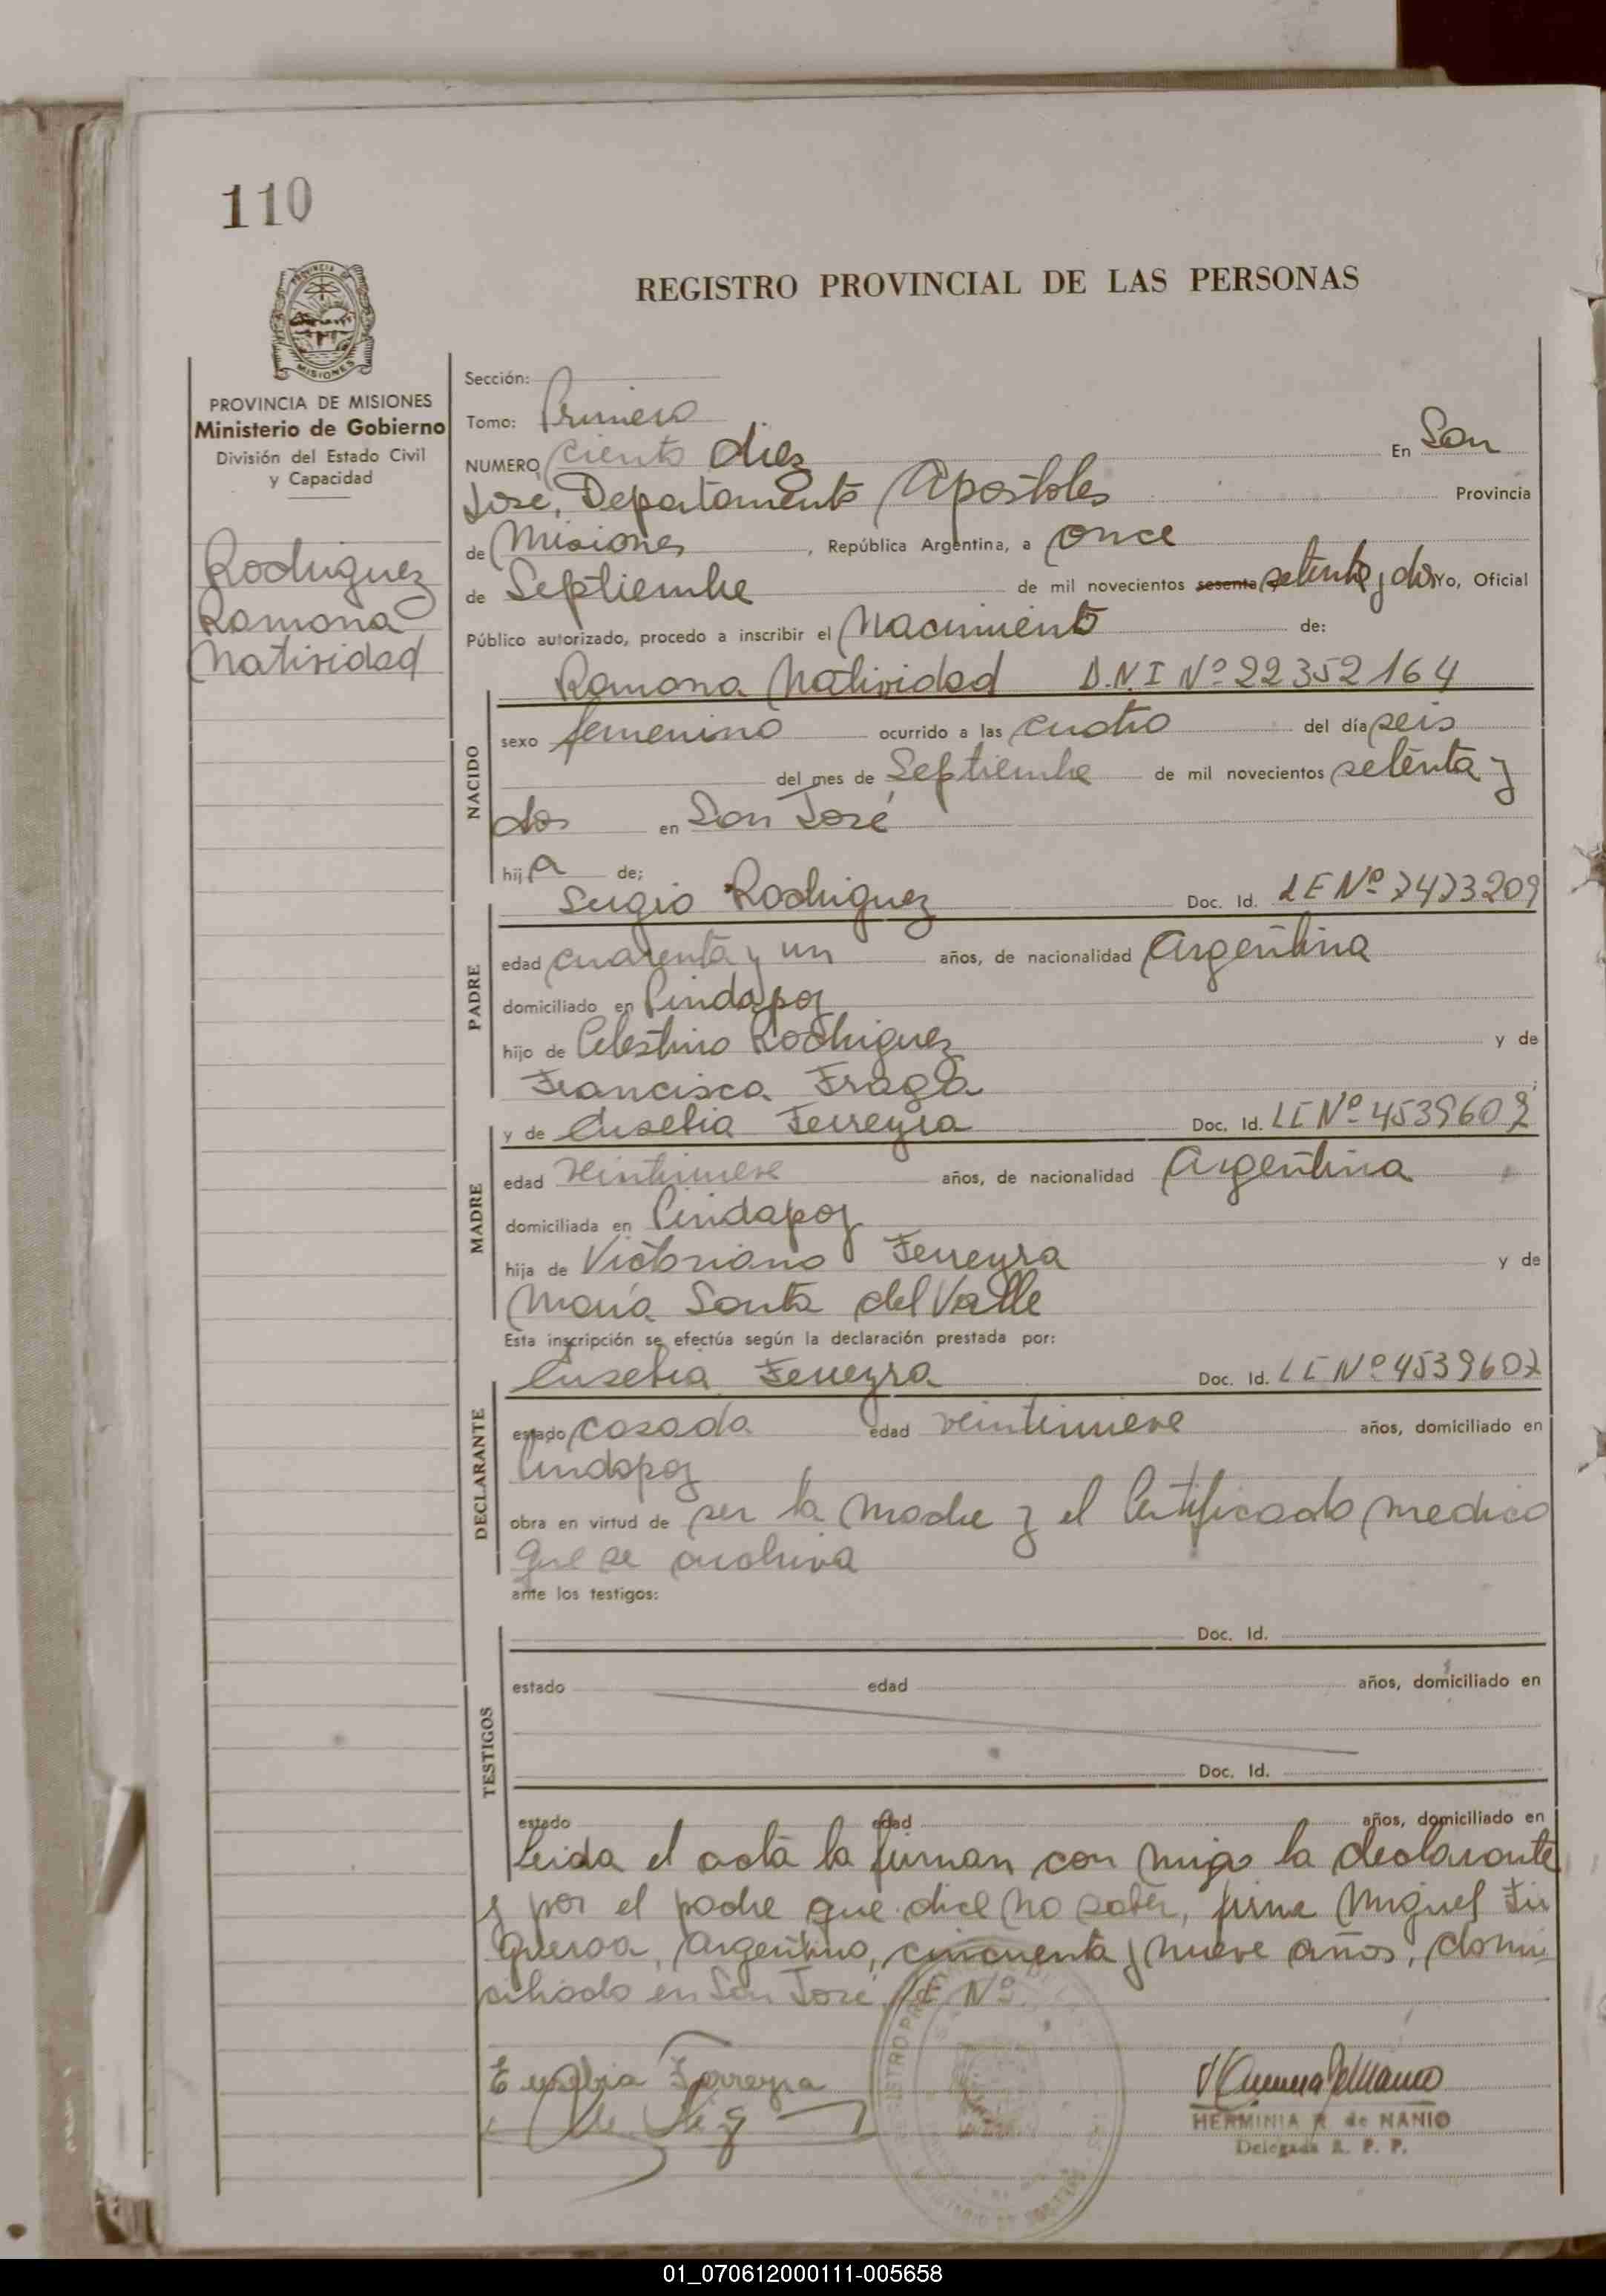 110
REGISTRO PROVINCIAL DE LAS PERSONAS
PROVINCIA DE MISIONES
Ministerio de Gobierno
División del Estado Civil
y Capacidad
Rodriguez
Ramona
Natividad
Sección:
Tomo: Primero
NUMERO ciento diez En San
José, Departamento Apostoles Provincia
de Misiones, República Argentina, a once
de Septiembre de mil novecientos sesenta setenta y dos Yo, Oficial
Público autorizado, procedo a inscribir el Nacimiento de:
Ramona Natividad D.N.I Nº 22352164
NACIDO
sexo femenino ocurrido a las cuatro del día seis
del mes de Septiembre de mil novecientos setenta y
dos en San José
hija de;
PADRE
Sergio Rodriguez Doc. Id. LE Nº 7473209
edad cuarenta y un años, de nacionalidad Argentina
domiciliado en Pindapoy
hijo de Celestino Rodriguez y de
Francisca Fraga;
MADRE
y de Eusebia Ferreyra Doc. Id. LE Nº 4539607
edad veintinueve años, de nacionalidad Argentina
domiciliada en Pindapoy
hija de Victoriano Ferreyra y de
María Santa del Valle
Esta inscripción se efectúa según la declaración prestada por:
DECLARANTE
Eusebia Ferreyra Doc. Id. LE Nº 4539607
estado casada edad veintinueve años, domiciliado en
Pindapoy
obra en virtud de ser la madre y el Certificado medico
que se archiva
ante los testigos:
TESTIGOS
Doc. Id.
estado edad años, domiciliado en
Doc. Id.
estado edad años, domiciliado en
Leida el acta la firman con migo la declarante
y por el padre que dice no saber, firma Miguel Fi
gueroa, Argentino, cincuenta y nueve años, domi
ciliado en San José, LE Nº
Eusebia Ferreyra
HERMINIA R. de NANIO
Delegada R. P. P.
01_070612000111-005658